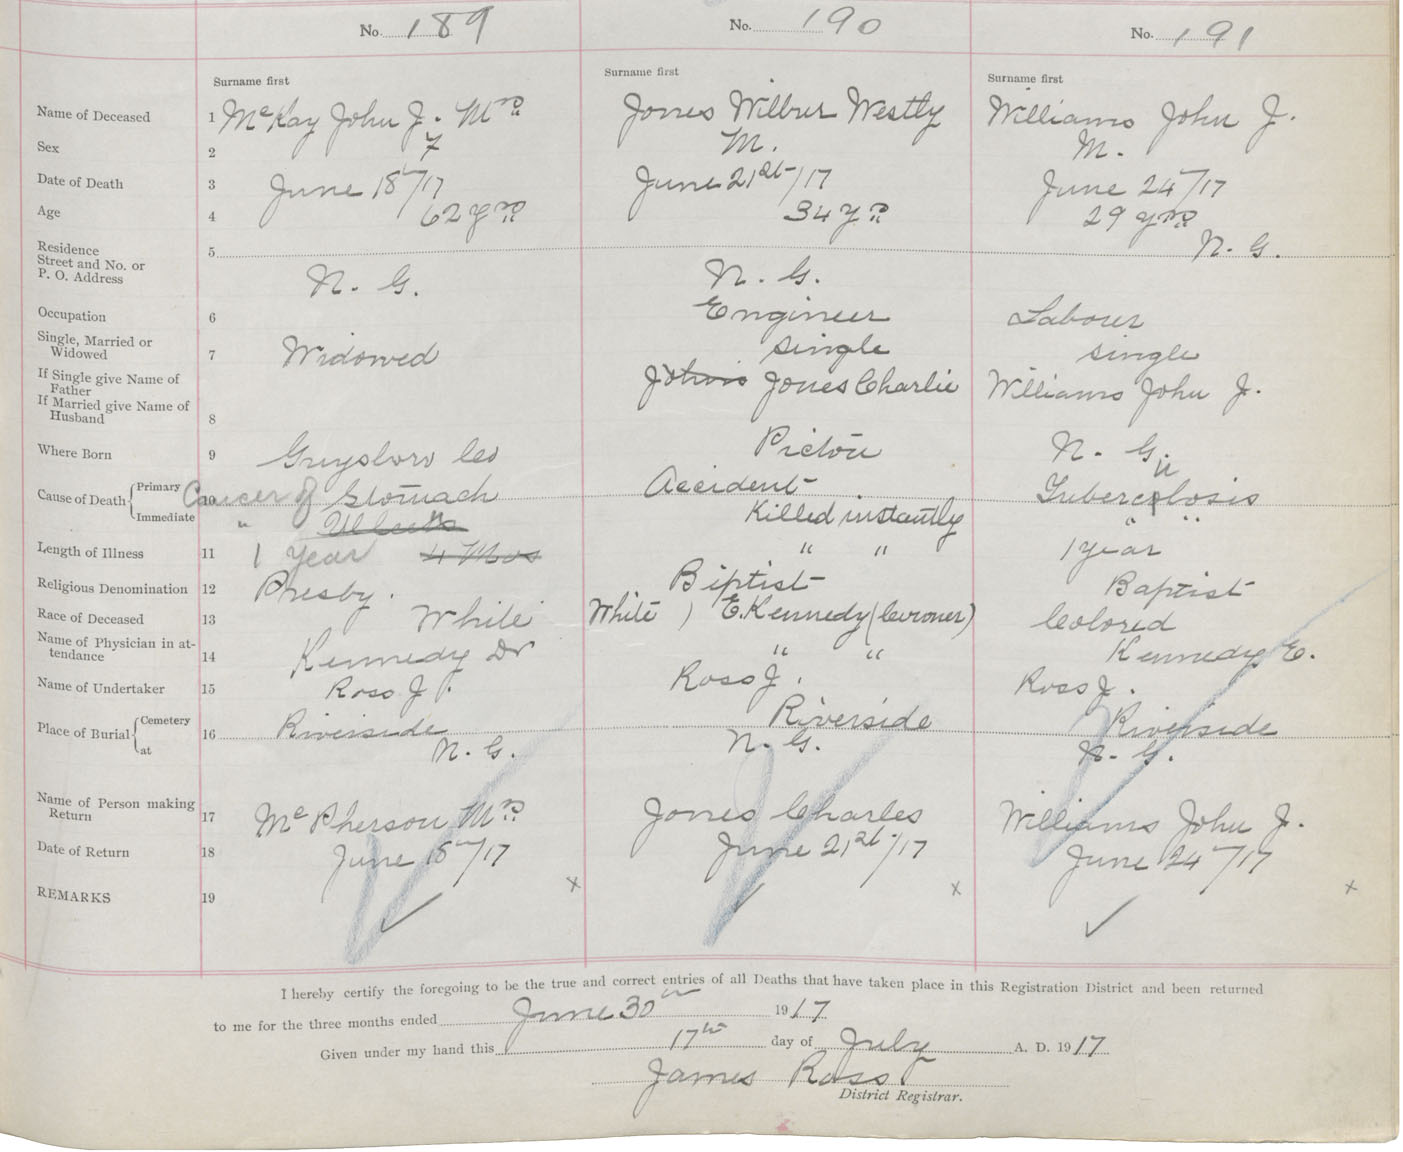 No. 189
No. 190
No. 191
Surname first
Surname first
Surname first
Name of Deceased 1 McKay John J. Mrs Jones Wilbur Westly Williams John J.
Sex 2 F M. M.
Date of Death 3 June 18/17 June 21st/17 June 24/17
Age 4 62 yrs 34 yrs 29 yrs
Residence
Street and No. or
P. O. Address 5 N. G. N. G. N. G.
Occupation 6 Engineer Labourer
Single, Married or
Widowed 7 Widowed Single Single
If Single give Name of
Father
If Married give Name of
Husband 8 Jones Charlie Williams John J.
Where Born 9 Guysboro Co Pictou N. G.
Cause of Death { Primary 10 Cancer of Stomach Accident Tuberculosis
Immediate " Ulcers Killed instantly " "
Length of Illness 11 1 year 4 Mos " " 1 year
Religious Denomination 12 Presby. Biptist Baptist
Race of Deceased 13 White White ) E. Kennedy (Coroner) Colored
Name of Physician in at-
tendance 14 Kennedy Dr " " Kennedy E.
Name of Undertaker 15 Ross J. Ross J. Ross J.
Place of Burial { Cemetery 16 Riverside Riverside Riverside
at N. G. N. G. N. G.
Name of Person making
Return 17 McPherson Mrs Jones Charles Williams John J.
Date of Return 18 June 18/17 June 21st/17 June 24/17
REMARKS 19 x x x
I hereby certify the foregoing to be the true and correct entries of all Deaths that have taken place in this Registration District and been returned
to me for the three months ended June 30th 1917
Given under my hand this 17th day of July A. D. 1917
James Ross
District Registrar.